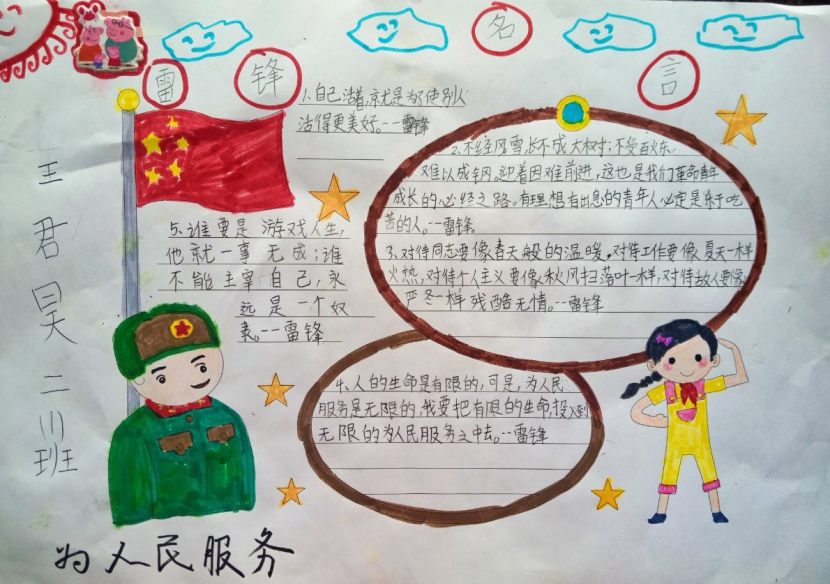 雷锋名言
王君昊 二(1)班
1.自己活着,就是为了使别人
活得更美好。--雷锋
2、不经风雪,长不成大树;不受百炼,
难以成钢,迎着困难前进,这也是我们革命青年
成长的必经之路。有理想有出息的青年人必定是乐于吃
苦的人。--雷锋
3、对待同志要像春天般的温暖,对待工作要像夏天一样
火热,对待个人主义要像秋风扫落叶一样,对待敌人要像
严冬一样残酷无情。--雷锋
4、人的生命是有限的,可是,为人民
服务是无限的,我要把有限的生命,投入到
无限的为人民服务之中去。--雷锋
5、谁要是游戏人生,
他就一事无成;谁
不能主宰自己,永
远是一个奴
隶。--雷锋
为人民服务